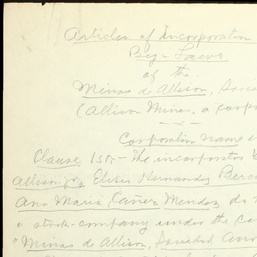 Articles of Incorporation
By-Laws
of the
Minas de Allison,
(Allison Mines, a
Corporation name
Clause 1st:- The incorporators
Allison Jr, Elisa Hernandez
Ana Maria Xavier Mendez do
a stock-company under the
"Minas de Allison, Sociedad